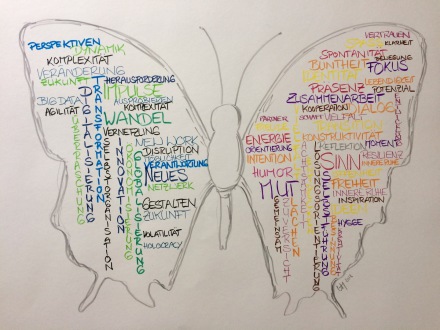 PERSPEKTIVEN
DYNAMIK
KOMPLEXITÄT
VERÄNDERUNG
ZUKUNFT
HERAUSFORDERUNG
IMPULSE
BIG DATA
AUSPROBIEREN
AGILITÄT
KOMPLEXITÄT
WANDEL
VERNETZUNG
NEW WORK
DISRUPTION
VERANTWORTUNG
NEUES
NETZWERK
GESTALTEN
ZUKUNFT
VOLATILITÄT
HOLOCRACY
ÜBERRASCHUNG
DIGITALISIERUNG
TRANSFORMATION
SELBSTORGANISATION
INNOVATION
GLOBALISIERUNG
VERTRAUEN
KLARHEIT
SPONTANITÄT
BUNTHEIT
FOKUS
IDENTITÄT
PRÄSENZ
LEBENDIGKEIT
POTENZIAL
ZUSAMMENARBEIT
KOOPERATION
DIALOG
PARTNER
VIELFALT
ENERGIE
KONSTRUKTIVITÄT
MOMENT
ORIENTIERUNG
REFLEKTION
INTENTION
SINN
RESILIENZ
HUMOR
MUT
FREIHEIT
INNERE RUHE
INSPIRATION
HYGGE
GEMEINSAM
ZUVERSICHT
LACHEN
LÖSUNGSORIENTIERUNG
SELBSTFÜHRUNG